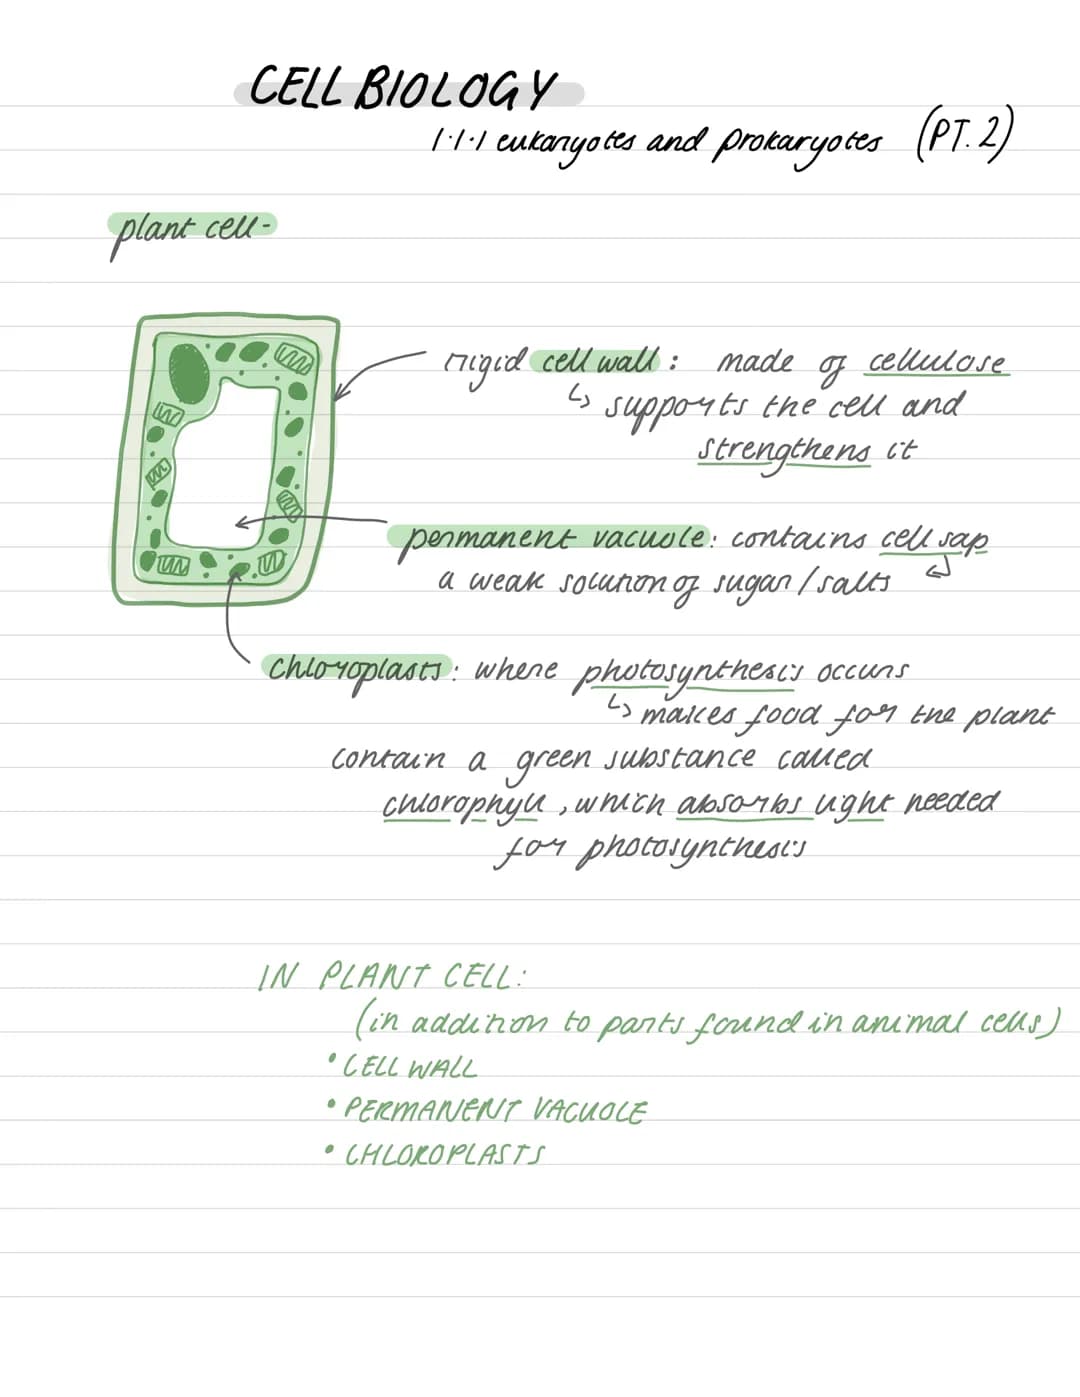 CELL BIOLOGY
1.1.1 eukaryotes and prokaryotes (PT. 2)
plant cell-
rigid cell wall: made of cellulose
↳ supports the cell and
strengthens it
permanent vacuole: contains cell sap
a weak solution of sugar/salts
chloroplasts: where photosynthesis occurs
↳ makes food for the plant
contain a green substance called
chlorophyll, which absorbs light needed
for photosynthesis
IN PLANT CELL:
(in addition to parts found in animal cells)
• CELL WALL
• PERMANENT VACUOLE
• CHLOROPLASTS